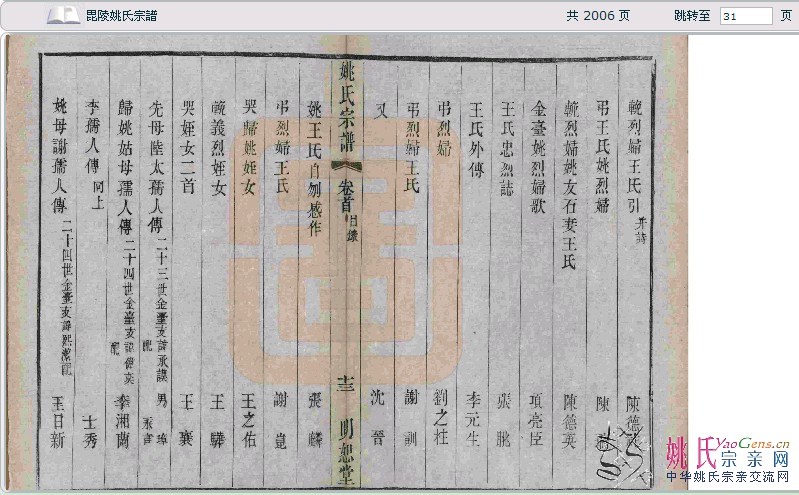 毘陵姚氏宗譜
共 2006 页
跳转至 31 页
輓烈婦王氏引 并詩 陳德
弔王氏姚烈婦 陳
輓烈婦姚友石妻王氏 陳德英
金臺姚烈婦歌 項亮臣
王氏忠烈誌 張
王氏外傳 李元生
弔烈婦 劉之柱
弔烈婦王氏 謝訓
又 沈晉
姚氏宗譜 卷首 目錄 十三 明恕堂
姚王氏自刎感作 張麟
弔烈婦王氏 謝
哭歸姚姪女 王之佑
輓義烈姪女 王驊
哭姪女二首 王襄
先母陸太孺人傳 二十三世金臺支諱承謨配 男
歸姚姑母孺人傳 二十四世金臺支諱 配 李湘蘭
李孺人傳 同上 士秀
姚母謝孺人傳 二十四世金臺支諱熙潔配 王日新
姚氏 YaoGens.cn
宗亲网
中华姚氏宗亲交流网